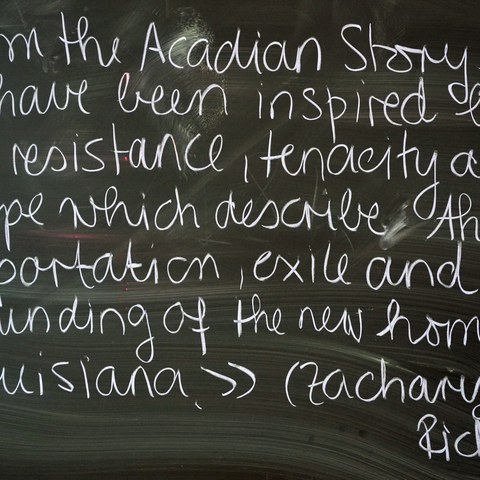 m the Acadian Story
have been inspired
resistance, tenacity a
pe which describe th
portation, exile and
unding of the new hom
uisiana, >> (Zachary
Rich